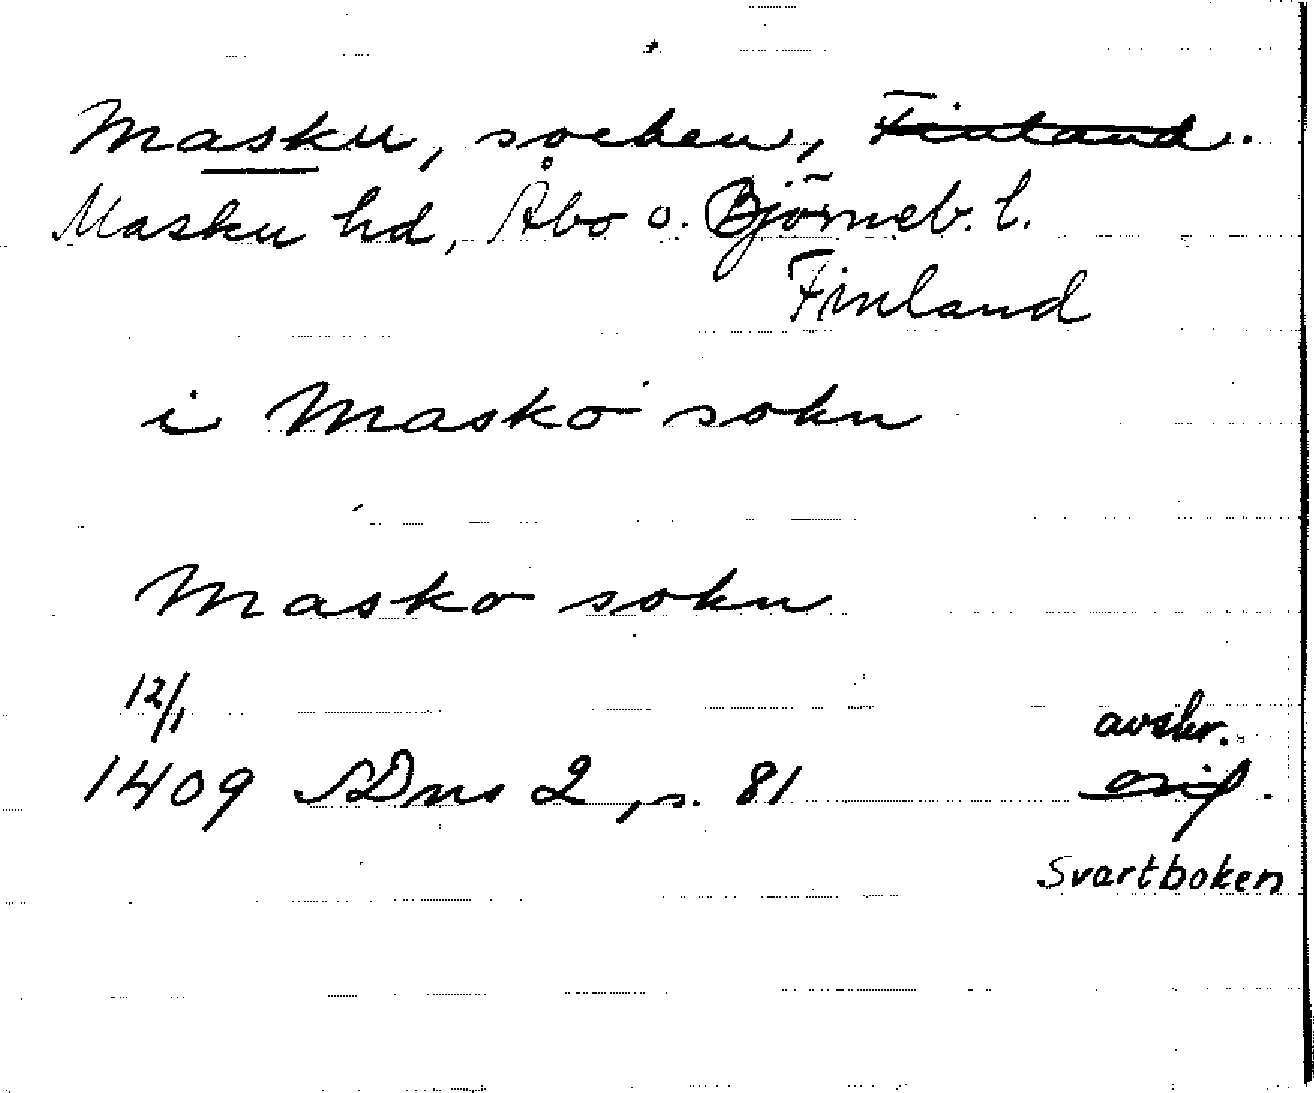 Masku, socken, Finland.
Masku hd, Åbo o. Björneb. l.
Finland
i Masko sokn
Masko sokn
12/1
avskr.
1409 SDns 2, s. 81 orig.
Svartboken